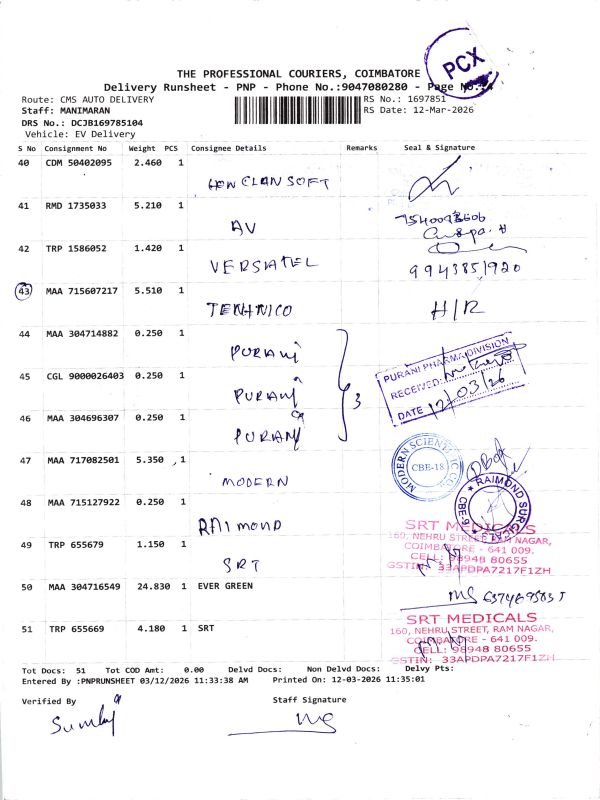 PCX
THE PROFESSIONAL COURIERS, COIMBATORE
Delivery Runsheet - PNP - Phone No.:9047080280 - Page No.
Route: CMS AUTO DELIVERY
RS No.: 1697851
Staff: MANIMARAN
RS Date: 12-Mar-2026
DRS No.: DCJB169785104
Vehicle: EV Delivery
S No Consignment No Weight PCS Consignee Details Remarks Seal & Signature
40 CDM 50402095 2.460 1
41 RMD 1735033 5.210 1
AV
42 TRP 1586052 1.420 1
VERSATEL
9943851920
43 MAA 715607217 5.510 1
H/R
44 MAA 304714882 0.250 1
PURANI
PURANI PHARMA DIVISION
RECEIVED:
DATE 12/03/26
45 CGL 9000026403 0.250 1
PURANI
3
46 MAA 304696307 0.250 1
PURANI
47 MAA 717082501 5.350 1
MODERN
MODERN SCIENTIFIC CO.
CBE-18
48 MAA 715127922 0.250 1
RAIMOND
RAIMOND SURGICAL
CBE-9
49 TRP 655679 1.150 1
SRT
SRT MEDICALS
160, NEHRU STREET, RAM NAGAR,
COIMBATORE - 641 009.
CELL: 98948 80655
GSTIN: 33APDPA7217F1ZH
50 MAA 304716549 24.830 1 EVER GREEN
51 TRP 655669 4.180 1 SRT
SRT MEDICALS
160, NEHRU STREET, RAM NAGAR,
COIMBATORE - 641 009.
CELL: 98948 80655
GSTIN: 33APDPA7217F1ZH
Tot Docs: 51 Tot COD Amt: 0.00 Delvd Docs: Non Delvd Docs: Delvy Pts:
Entered By :PNPRUNSHEET 03/12/2026 11:33:38 AM Printed On: 12-03-2026 11:35:01
Verified By
Staff Signature